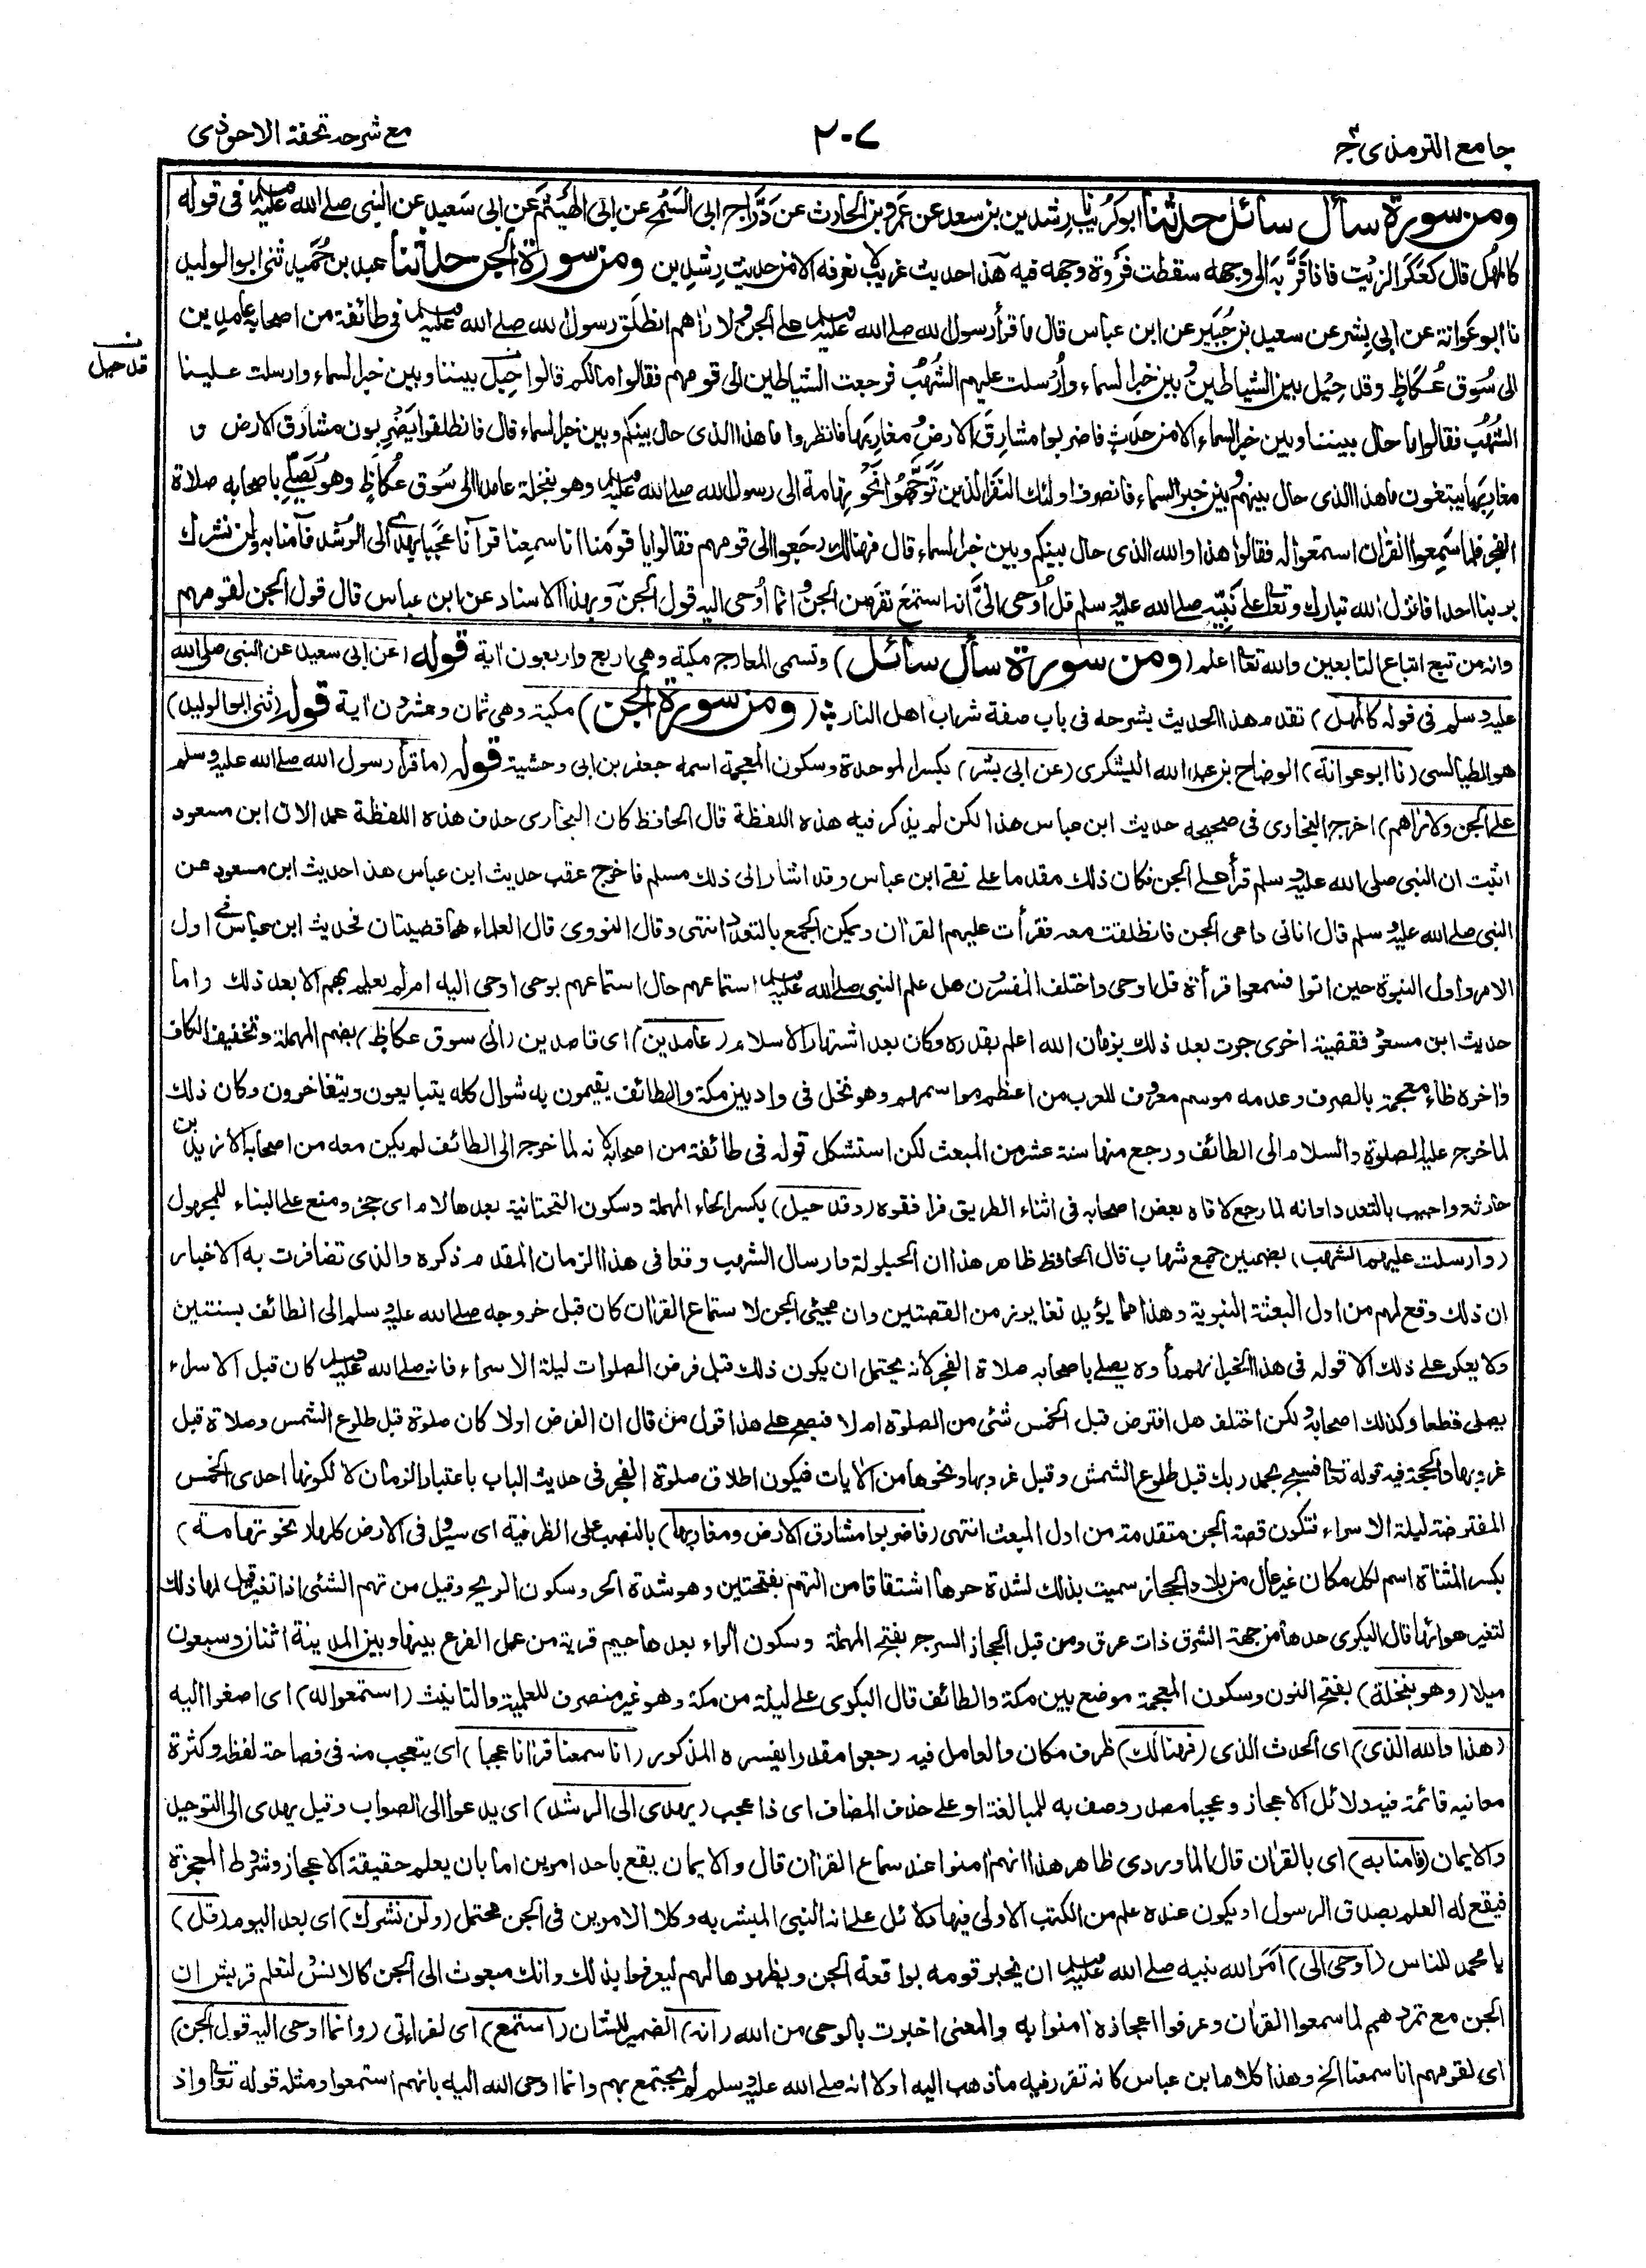 جامع الترمذى ج۴
۲۰۷
مع شرحه تحفة الاحوذى
ومن سورة سأل سائل حدثنا ابو كُرَيب نا رِشدين بن سعد عن عَمرو بن الحارث عن دَرَّاج ابى السَّمْح عن ابى الهَيْثَم عن ابى سَعيد عن النبى صلى الله عليه وسلم فى قوله
كالمهل قال كعَكَر الزيت فاذا قَرَّبه الى وجهه سقطت فَرْوة وجهه فيه هذا حديث غريب لا نعرفه الا من حديث رِشدِين ومن سورة الجن حدثنا عبد بن حُمَيد ثنى ابو الوليد
نا ابو عَوَانة عن ابى بِشر عن سعيد بن جُبَير عن ابن عباس قال ما قرأ رسول الله صلى الله عليه وسلم على الجن ولا راٰهم انطلَق رسول الله صلى الله عليه وسلم فى طائفة من اصحابه عامدين
قد حيل
الى سُوق عُكَاظٍ وقد حِيْل بين الشياطين وبين خبر السماء وأُرْسلت عليهم الشُهُب فرجعت الشياطين الى قومهم فقالوا مالكم قالوا حِيْل بيننا وبين خبر السماء وارسلت علينا
الشُهُب فقالوا ما حال بيننا وبين خبر السماء الا من حدَثٍ فاضربوا مشارق الارض ومغاربها فانظروا ما هذا الذى حال بينكم وبين خبر السماء قال فانطلقوا يَضْرِبون مشارق الارض و
مغاربها يبتغون ما هذا الذى حال بينهم وبين خبر السماء فانصرف اولئك النفر الذين تَوَجَّهُوا نَحْوَ تِهامة الى رسول الله صلى الله عليه وسلم وهو بنخلة عامدا الى سُوق عُكَاظٍ وهو يُصَلِّى باصحابه صلاة
الفجر فلما سَمِعوا القراٰن استمعوا له فقالوا هذا والله الذى حال بينكم وبين خبر السماء قال فهنالك رجعوا الى قومهم فقالوا يا قومَنا انا سمِعنا قرآنا عَجَبا يهدى الى الرُشد فآمنا به ولن نشرك
بربنا احدا فانزل الله تبارك وتعالى على نَبِيِّه صلى الله عليه وسلم قل أُوحى الىَّ انه استمعَ نفر من الجن وانما أُوحى اليه قول الجن وبهذا الاسناد عن ابن عباس قال قول الجن لقومهم
وانه من تبع اتباع التابعين والله تعالى اعلم (ومن سورة سأل سائل) وتسمى المعارج مكية وهى اربع واربعون اٰية قوله (عن ابى سعيد عن النبى صلى الله
عليه وسلم فى قوله كالمهل) تقدم هذا الحديث بشرحه فى باب صفة شراب اهل النار (ومن سورة الجن) مكية وهى ثمان وعشرون اٰية قوله (ثنى ابو الوليد)
هو الطيالسى (نا ابو عوانة) الوضاح بن عبد الله اليشكرى (عن ابى بشر) بكسر الموحدة وسكون المعجمة اسمه جعفر بن ابى وحشية قوله (ما قرأ رسول الله صلى الله عليه وسلم
على الجن ولا راٰهم) اخرج البخارى فى صحيحه حديث ابن عباس هذا لكن لم يذكر فيه هذه اللفظة قال الحافظ كان البخارى حذف هذه اللفظة عمدا لان ابن مسعود
اثبت ان النبى صلى الله عليه وسلم قرأ على الجن فكان ذلك مقدما على نفى ابن عباس وقد اشار الى ذلك مسلم فاخرج عقب حديث ابن عباس هذا حديث ابن مسعود عن
النبى صلى الله عليه وسلم قال اتانى داعى الجن فانطلقت معه فقرأت عليهم القراٰن ويمكن الجمع بالتعدد انتهى وقال النووى قال العلماء هما قضيتان فحديث ابن عباس فى اول
الامر واول النبوة حين اتوا فسمعوا قرأة قل اوحى واختلف المفسرون هل علم النبى صلى الله عليه وسلم استماعهم حال استماعهم بوحى اوحى اليه ام لم يعلم بهم الا بعد ذلك واما
حديث ابن مسعود فقضية اخرى جرت بعد ذلك بزمان الله اعلم بقدره وكان بعد اشتهار الاسلام (عامدين) اى قاصدين (الى سوق عكاظ) بضم المهملة وتخفيف الكاف
واٰخره ظاء معجمة بالصرف وعدمه موسم معروف للعرب من اعظم مواسمهم وهو نخل فى واد بين مكة والطائف يقيمون به شوال كله يتبايعون ويتفاخرون وكان ذلك
لما خرج عليه الصلوة والسلام الى الطائف ورجع منها سنة عشر من المبعث لكن استشكل قوله فى طائفة من اصحابه لانه لما خرج الى الطائف لم يكن معه من اصحابه الا زيد بن
حارثة واجيب بالتعدد او انه لما رجع لاقاه بعض اصحابه فى اثناء الطريق فرافقوه (وقد حيل) بكسر الحاء المهملة وسكون التحتانية بعدها لام اى حجز ومنع على البناء للمجهول
(وارسلت عليهم الشهب) بضمتين جمع شهاب قال الحافظ ظاهر هذا ان الحيلولة وارسال الشهب وقعا فى هذا الزمان المقدم ذكره والذى تضافرت به الاخبار
ان ذلك وقع لهم من اول البعثة النبوية وهذا مما يؤيد تغاير زمن القصتين وان مجيئى الجن لاستماع القراٰن كان قبل خروجه صلى الله عليه وسلم الى الطائف بسنتين
ولا يعكر على ذلك الا قوله فى هذا الخبر انهم رأوه يصلى باصحابه صلاة الفجر لانه يحتمل ان يكون ذلك قبل فرض الصلوات ليلة الاسراء فانه صلى الله عليه وسلم كان قبل الاسراء
يصلى قطعا وكذلك اصحابه ولكن اختلف هل افترض قبل الخمس شئ من الصلوة ام لا فيصح على هذا قول من قال ان الفرض اولا كان صلوة قبل طلوع الشمس وصلاة قبل
غروبها والحجة فيه قوله تعالى فسبح بحمد ربك قبل طلوع الشمس وقبل غروبها ونحوها من الاٰيات فيكون اطلاق صلوة الفجر فى حديث الباب باعتبار الزمان لا لكونها احدى الخمس
المفترضة ليلة الاسراء فتكون قصة الجن متقدمة من اول المبعث انتهى (فاضربوا مشارق الارض ومغاربها) بالنصب على الظرفية اى سيروا فى الارض كلها (نحو تهامة)
بكسر المثناة اسم لكل مكان غير عال من بلاد الحجاز سميت بذلك لشدة حرها اشتقاقا من التهم بفتحتين وهو شدة الحر وسكون الريح وقيل من تهم الشئى اذا تغير قيل لها ذلك
لتغير هوائها قال البكرى حدها من جهة الشرق ذات عرق ومن قبل الحجاز السرج بفتح المهملة وسكون الراء بعدها جيم قرية من عمل الفرع بينها وبين المدينة اثنان وسبعون
ميلا (وهو بنخلة) بفتح النون وسكون المعجمة موضع بين مكة والطائف قال البكرى على ليلة من مكة وهو غير منصرف للعلمية والتانيث (استمعوا له) اى اصغوا اليه
(هذا والله الذى) اى الحدث الذى (فهنالك) ظرف مكان والعامل فيه رجعوا مقدرا يفسره المذكور (انا سمعنا قراٰنا عجبا) اى يتعجب منه فى فصاحة لفظه وكثرة
معانيه قائمة فيه دلائل الاعجاز وعجبا مصدر وصف به للمبالغة او على حذف المضاف اى ذا عجب (يهدى الى الرشد) اى يدعوا الى الصواب وقيل يهدى الى التوحيد
والايمان (فاٰمنا به) اى بالقراٰن قال الماوردى ظاهر هذا انهم اٰمنوا عند سماع القراٰن قال والايمان يقع باحد امرين اما بان يعلم حقيقة الاعجاز وشروط المعجزة
فيقع له العلم بصدق الرسول او يكون عنده علم من الكتب الاولى فيها دلائل على انه النبى المبشر به وكلا الامرين فى الجن محتمل (ولن نشرك) اى بعد اليوم (قل)
يا محمد للناس (اوحى الى) اَمَر الله نبيه صلى الله عليه وسلم ان يخبر قومه بواقعة الجن ويظهرها لهم ليعرفوا بذلك وانك مبعوث الى الجن كالانس لتعلم قريش ان
الجن مع تمردهم لما سمعوا القراٰن وعرفوا اعجازه اٰمنوا به والمعنى اخبرت بالوحى من الله (انه) الضمير للشان (استمع) اى لقراءتى (وانما اوحى اليه قول الجن)
اى لقومهم انا سمعنا الخ وهذا كلام ابن عباس كانه تقرر فيه ما ذهب اليه اولا انه صلى الله عليه وسلم لم يجتمع بهم وانما اوحى الله اليه بانهم استمعوا ومثله قوله تعالى واذ